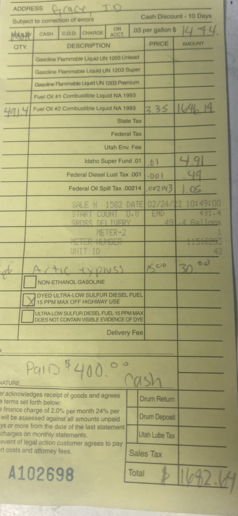 ADDRESS Gracy, ID
Subject to correction of errors
Cash Discount - 10 Days
CASH C.O.D. CHARGE ON ACCT. .03 per gallon $ 14.74
QTY. DESCRIPTION PRICE AMOUNT
Gasoline Flammable Liquid UN 1203 Unlead
Gasoline Flammable Liquid UN 1203 Super
Gasoline Flammable Liquid UN 1203 Premium
Fuel Oil #1 Combustible Liquid NA 1993
491.4 Fuel Oil #2 Combustible Liquid NA 1993 3.35 1646.19
State Tax
Federal Tax
Utah Env. Fee
Idaho Super Fund .01 .01 4.91
Federal Diesel Lust Tax .001 .001 .49
Federal Oil Spill Tax .00214 .002143 1.05
SALE # 1582 DATE 02/24/22 10:49:00
START COUNT 0.0 END 491.4
GROSS DELIVERY 491.4 Gallons
METER-2 1
METER NUMBER
UNIT ID 42
Artic Express 15.00 30.00
NON-ETHANOL GASOLINE
X DYED ULTRA-LOW SULFUR DIESEL FUEL
15 PPM MAX OFF HIGHWAY USE
ULTRA-LOW SULFUR DIESEL FUEL 15 PPM MAX
DOES NOT CONTAIN VISIBLE EVIDENCE OF DYE
Delivery Fee
Paid $400.00
Cash
NATURE
er acknowledges receipt of goods and agrees
e terms set forth below:
e finance charge of 2.0% per month 24% per
will be assessed against all amounts unpaid
ys or more from the date of the last statement
charges on monthly statements.
event of legal action customer agrees to pay
rt costs and attorney fees.
Drum Return
Drum Deposit
Utah Lube Tax
Sales Tax
A102698
Total $ 1682.64